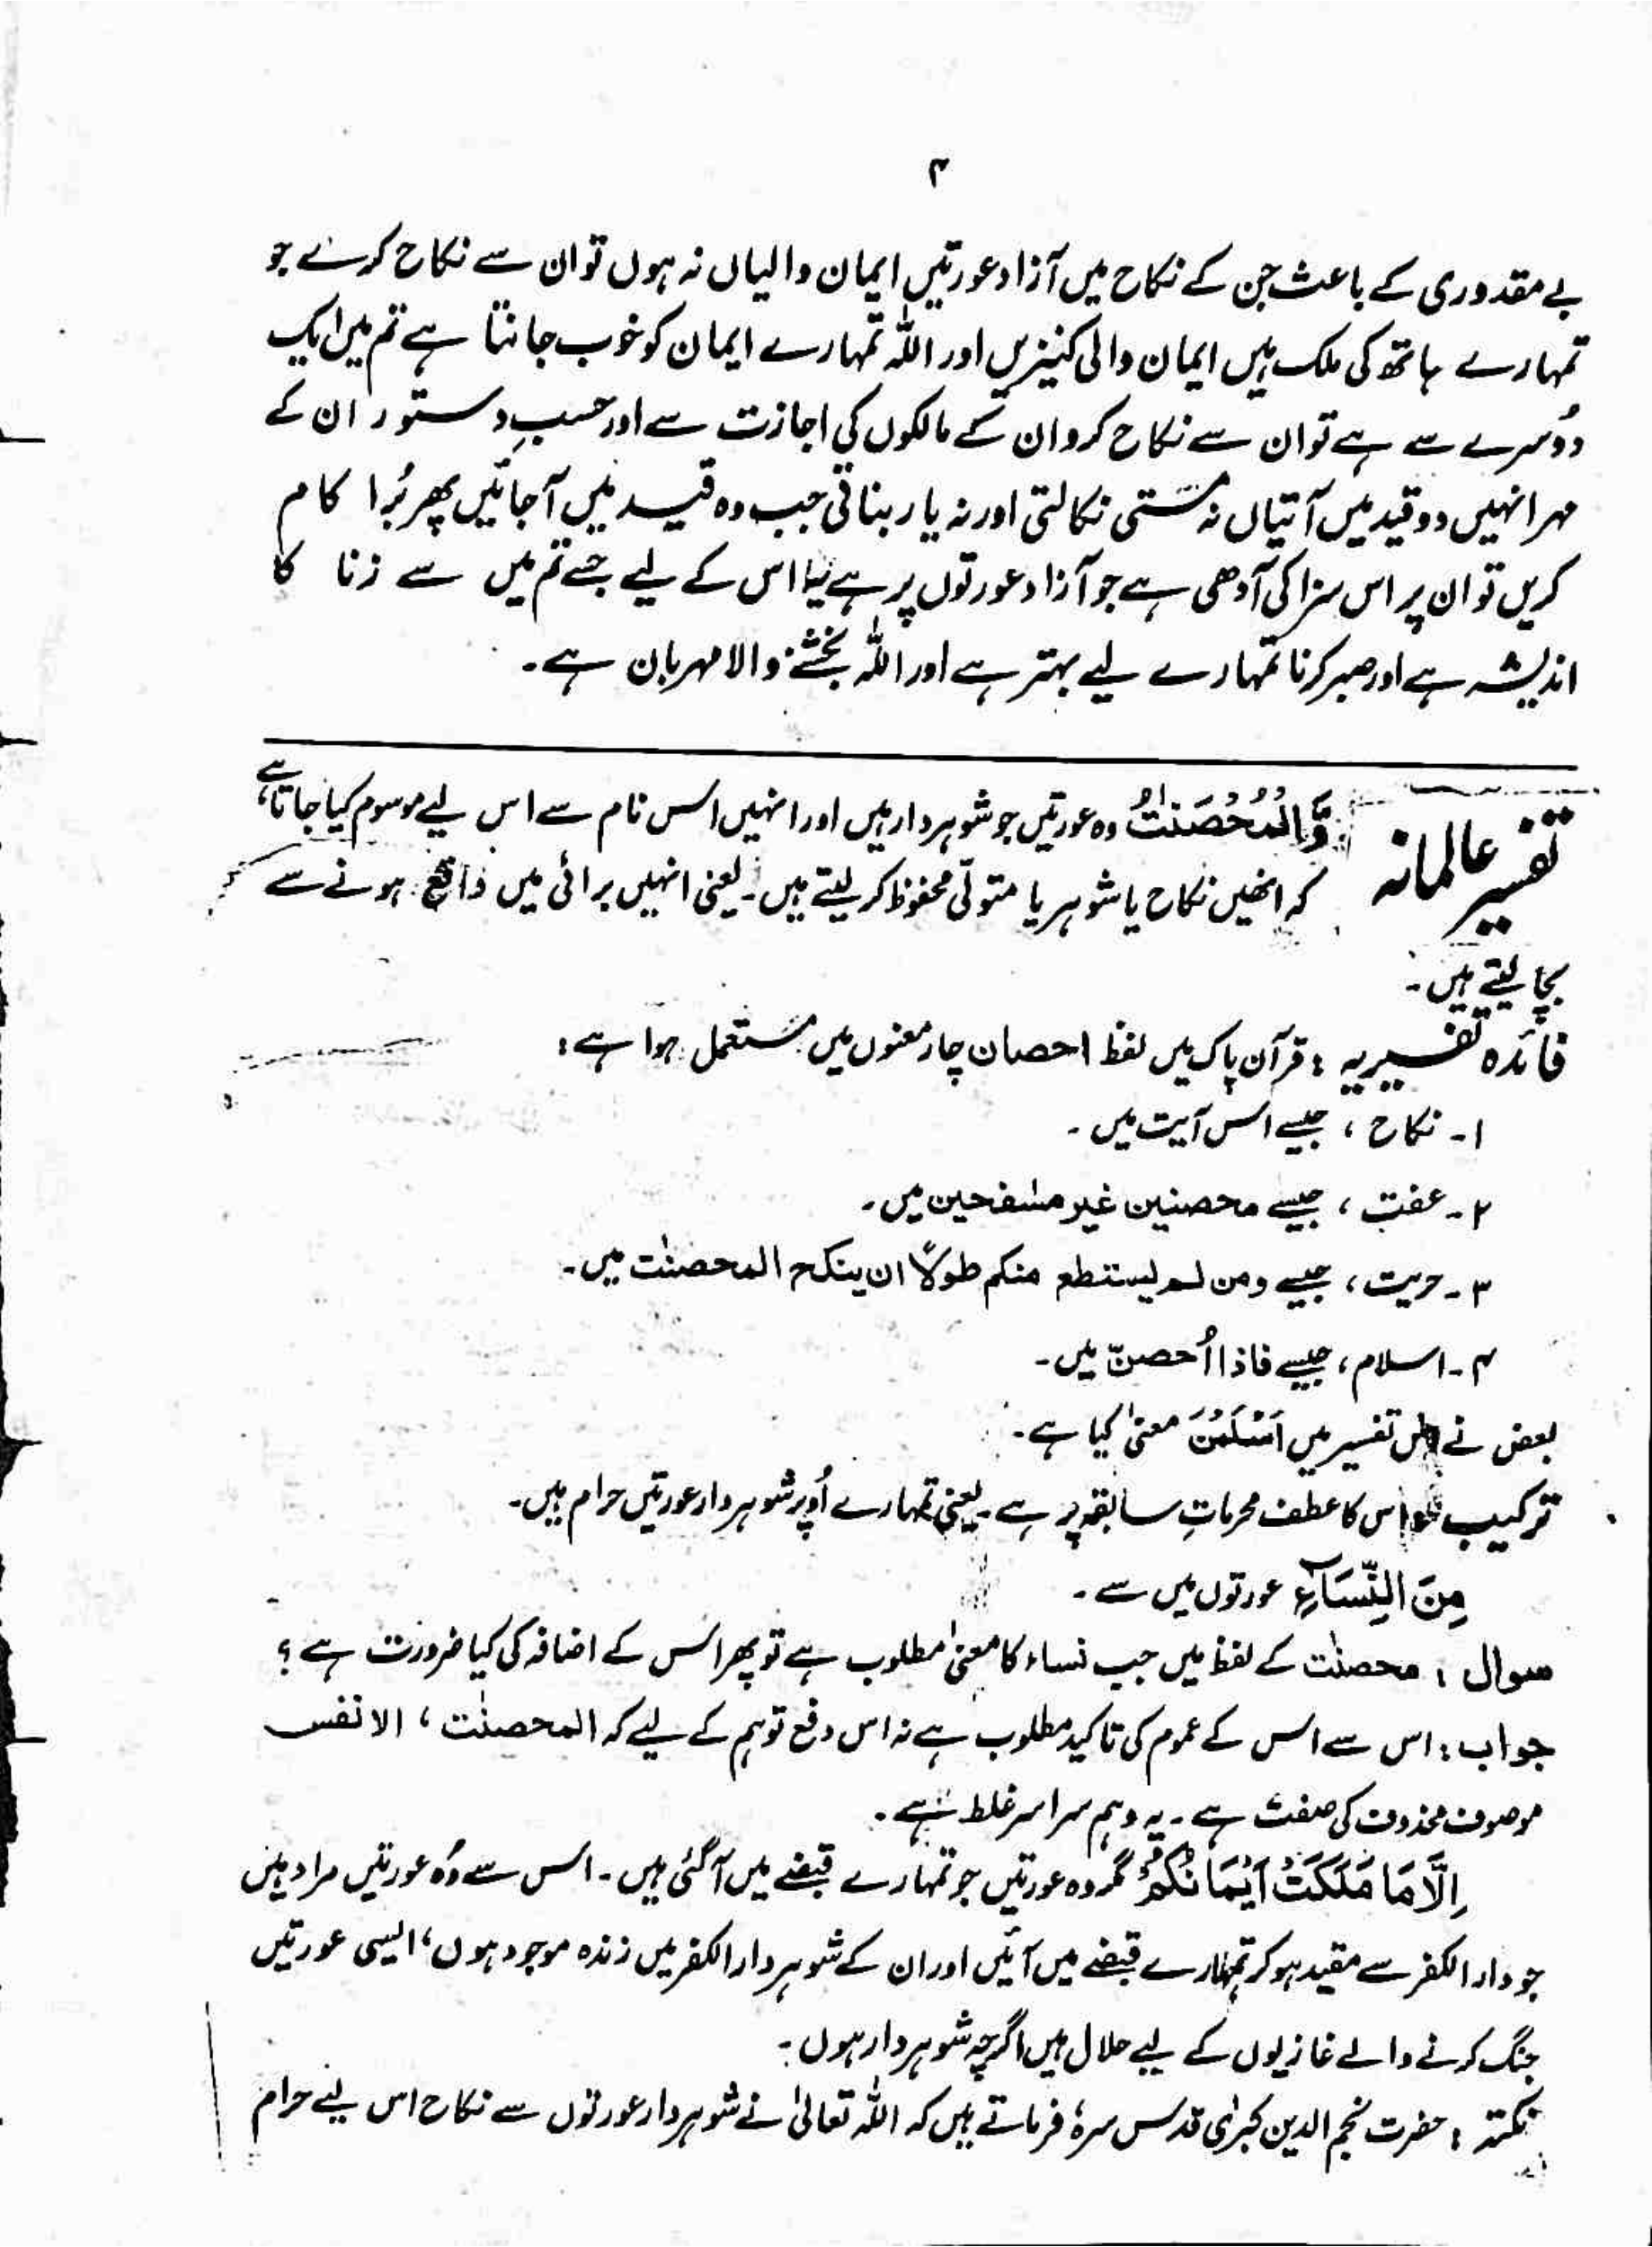 ۴
بے مقدوری کے باعث جن کے نکاح میں آزاد عورتیں ایمان والیاں نہ ہوں تو ان سے نکاح کرے جو
تمہارے ہاتھ کی ملک ہیں ایمان والی کنیزیں اور اللہ تمہارے ایمان کو خوب جانتا ہے تم میں ایک
دوُسرے سے ہے تو ان سے نکاح کرو ان کے مالکوں کی اجازت سے اور حسبِ دستور ان کے
مہر انہیں دو قید میں آتیاں نہ مستی نکالتی اور نہ یار بناتی جب وہ قید میں آجائیں پھر بُرا کام
کریں تو ان پر اس سزا کی آدھی ہے جو آزاد عورتوں پر ہے یہ اس کے لیے جسے تم میں سے زنا کا
اندیشہ ہے اور صبر کرنا تمہارے لیے بہتر ہے اور اللہ بخشنے والا مہربان ہے۔
تفسیر عالمانہ وَّالْمُحْصَنٰتُ وہ عورتیں جو شوہردار ہیں اور انہیں اس نام سے اس لیے موسوم کیا جاتا ہے
کہ انھیں نکاح یا شوہر یا متولّی محفوظ کر لیتے ہیں۔ یعنی انہیں برائی میں واقع ہونے سے
بچا لیتے ہیں۔
فائدہ تفسیریہ : قرآن پاک میں لفظ احصان چار معنوں میں مستعمل ہوا ہے :
۱۔ نکاح ، جیسے اس آیت میں ۔
۲۔ عفت ، جیسے محصنین غیر مسٰفحین میں۔
۳۔ حریت ، جیسے ومن لم یستطع منکم طولًا ان ینکح المحصنٰت میں۔
۴۔ اسلام ، جیسے فاذا اُحصنّ میں۔
بعض نے اس تفسیر میں اَسْلَمْنَ معنیٰ کیا ہے۔
ترکیب اس کا عطف محرماتِ سابقہ پر ہے ۔ یعنی تمہارے اُوپر شوہردار عورتیں حرام ہیں۔
مِنَ النِّسَآءِ عورتوں میں سے ۔
سوال : محصنٰت کے لفظ میں جب نساء کا معنیٰ مطلوب ہے تو پھر اس کے اضافہ کی کیا ضرورت ہے ؟
جواب : اس سے اس کے عموم کی تاکید مطلوب ہے نہ اس دفع توہم کے لیے کہ المحصنٰت ، الانفس
موصوف محذوف کی صفت ہے ۔ یہ وہم سراسر غلط ہے ۔
اِلَّا مَا مَلَکَتْ اَیْمَانُکُمْ مگر وہ عورتیں جو تمہارے قبضے میں آگئی ہیں ۔ اس سے وُہ عورتیں مراد ہیں
جو دار الکفر سے مقید ہو کر تمہارے قبضے میں آئیں اور ان کے شوہر دار الکفر میں زندہ موجود ہوں ، ایسی عورتیں
جنگ کرنے والے غازیوں کے لیے حلال ہیں اگرچہ شوہردار ہوں ۔
نکتہ : حضرت نجم الدین کبریٰ قدس سرہٗ فرماتے ہیں کہ اللہ تعالیٰ نے شوہردار عورتوں سے نکاح اس لیے حرام